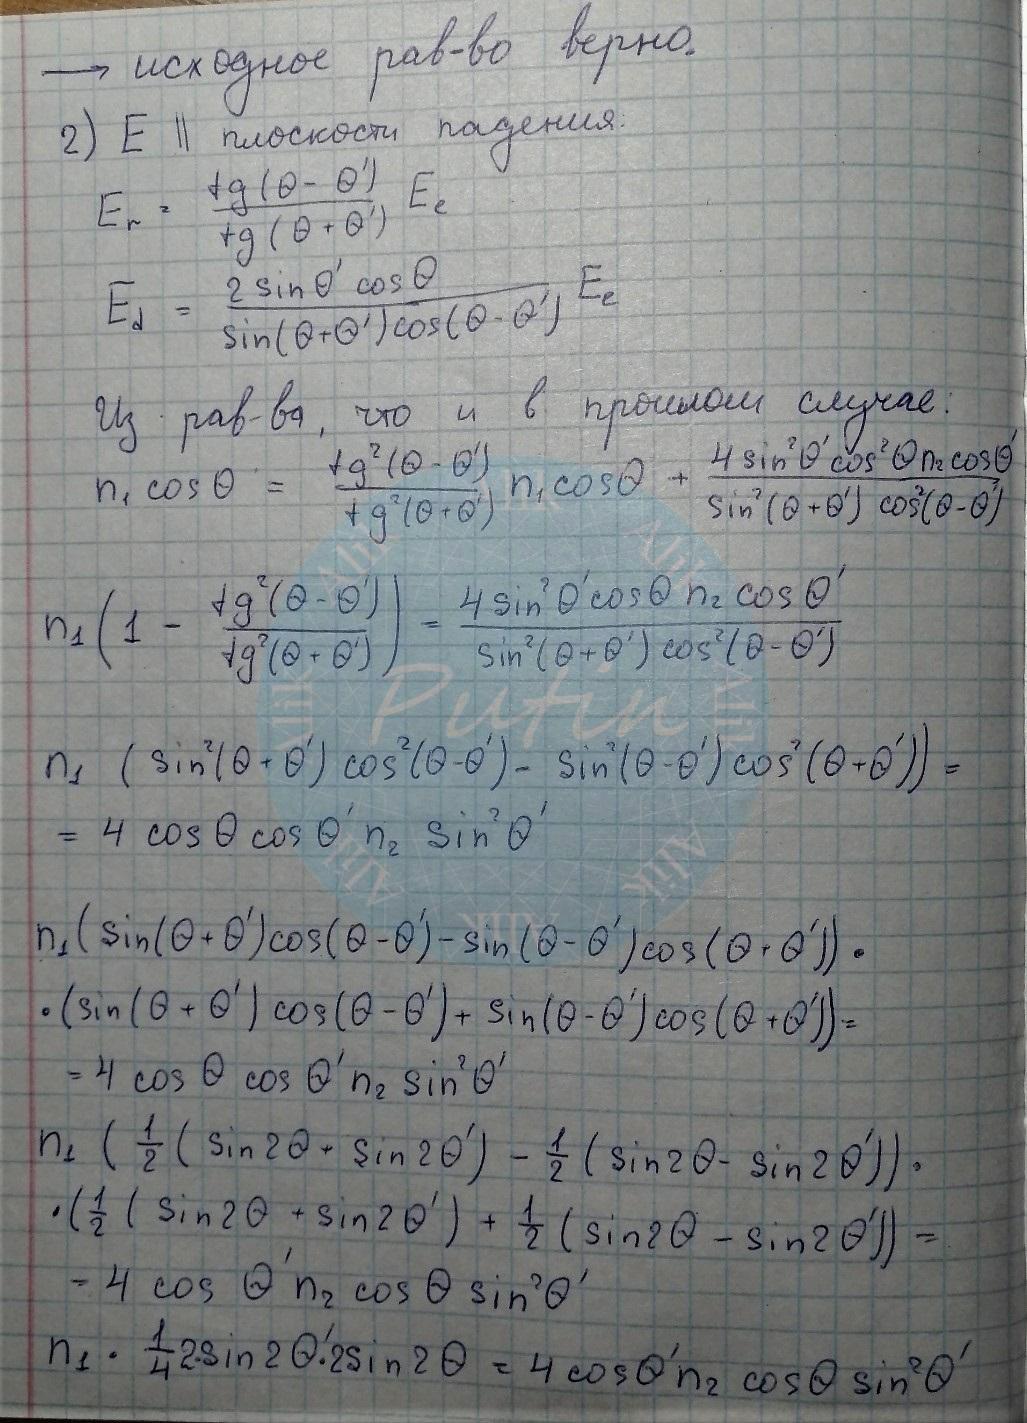 → исходное рав-во верно.
2) E || плоскости падения:
E_r = tg(θ - θ') / tg(θ + θ') E_e
E_d = 2 sinθ' cosθ / sin(θ+θ')cos(θ-θ') E_e
Из рав-ва, что и в прошлом случае:
n₁ cosθ = tg²(θ-θ') / tg²(θ+θ') n₁cosθ + 4 sin²θ' cos²θ n₂ cosθ' / sin²(θ+θ') cos²(θ-θ')
n₁(1 - tg²(θ-θ') / tg²(θ+θ')) = 4 sin²θ' cosθ n₂ cosθ' / sin²(θ+θ') cos²(θ-θ')
n₁ (sin²(θ+θ') cos²(θ-θ') - sin²(θ-θ') cos²(θ+θ')) =
= 4 cosθ cosθ' n₂ sin²θ'
n₁(sin(θ+θ')cos(θ-θ') - sin(θ-θ')cos(θ+θ')) ·
·(sin(θ+θ') cos(θ-θ') + sin(θ-θ')cos(θ+θ')) =
= 4 cosθ cosθ' n₂ sin²θ'
n₁ (1/2 (sin2θ + sin2θ') - 1/2 (sin2θ - sin2θ')) ·
·(1/2 (sin2θ + sin2θ') + 1/2 (sin2θ - sin2θ')) =
= 4 cosθ' n₂ cosθ sin²θ'
n₁ · 1/4 2·sin2θ'·2sin2θ = 4 cosθ' n₂ cosθ sin²θ'
Putin
Alik
Alik
Alik
Alik
Alik
Alik
Alik
Alik